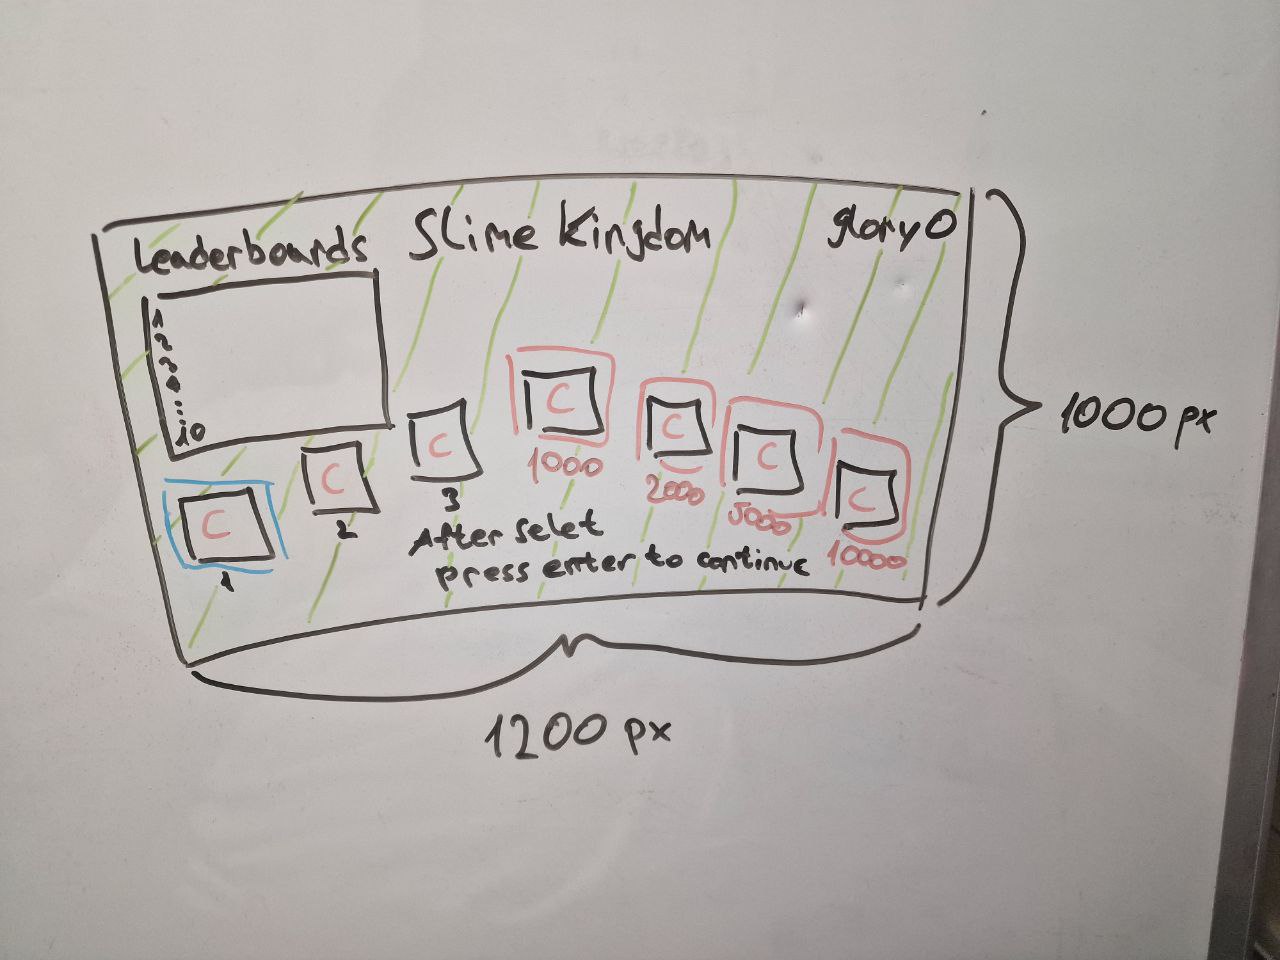 Leaderboards
Slime Kingdom
glory 0
1
2
3
4
...
10
C
1
C
2
C
3
C
1000
C
2000
C
5000
C
10000
After selet
press enter to continue
1000 px
1200 px